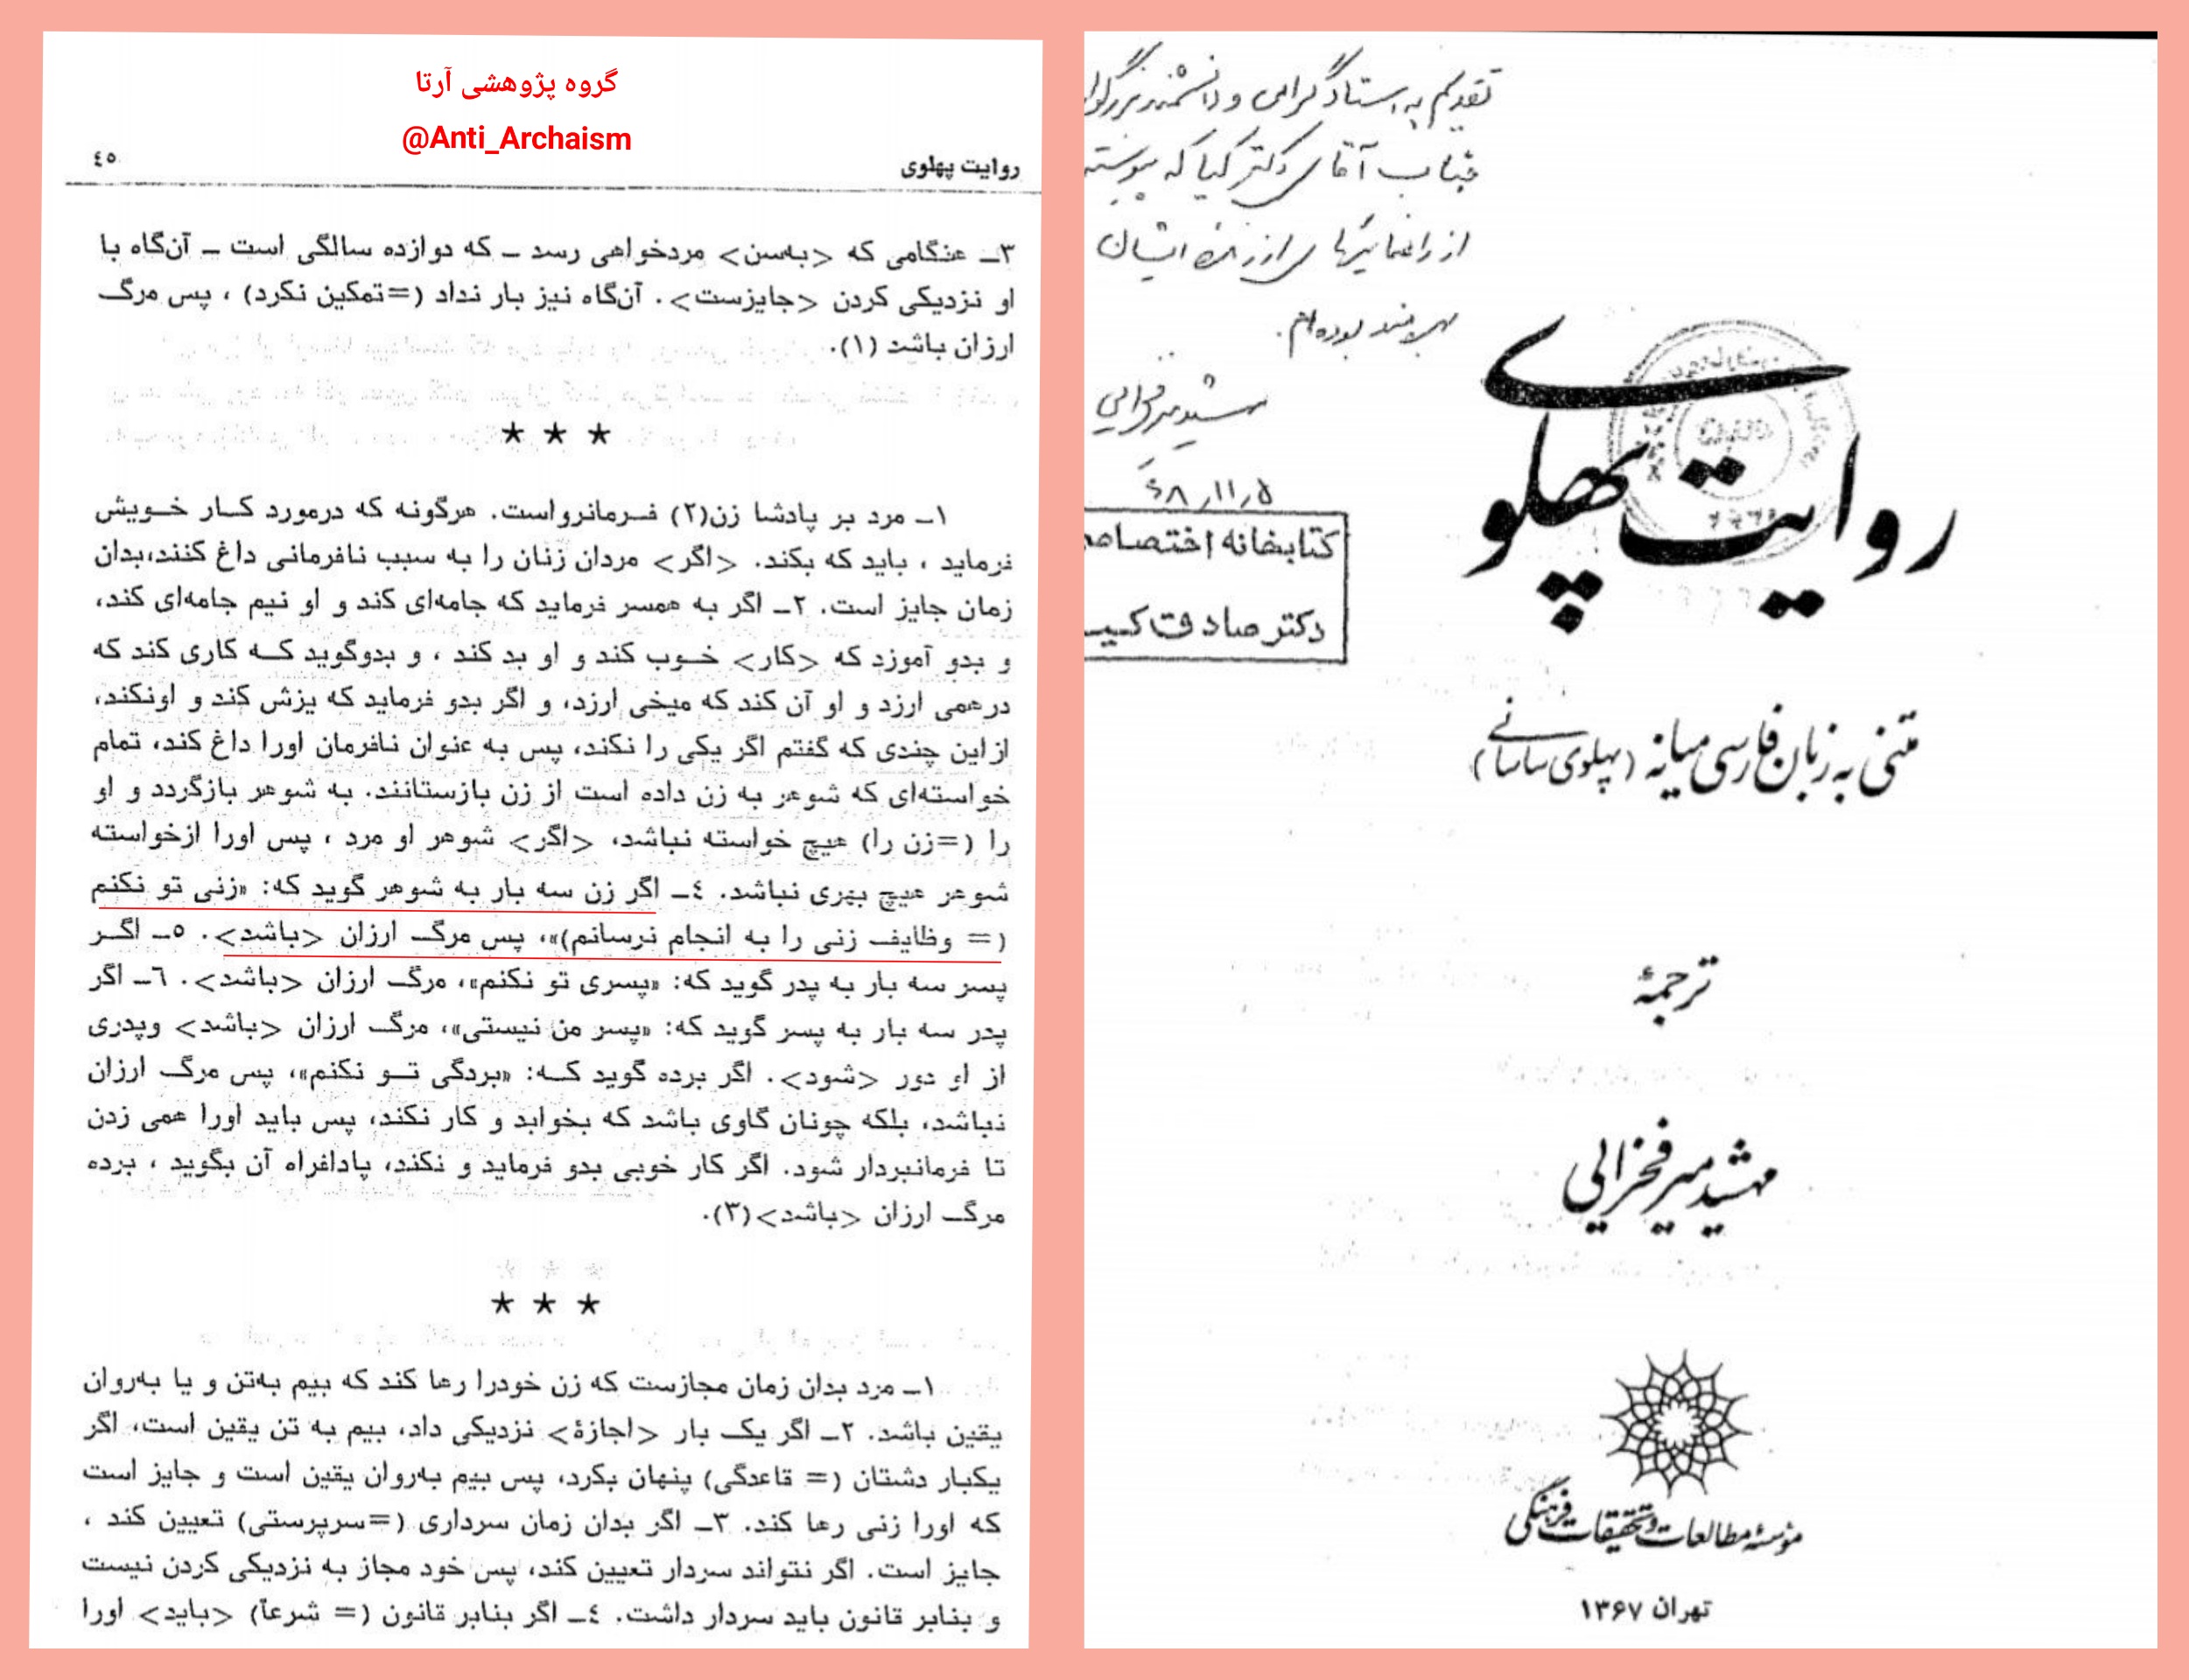 گروه پژوهشی آرتا
@Anti_Archaism
روایت پهلوی
٤٥
۳ـ هنگامی که <به‌سن> مردخواهی رسد ـ که دوازده سالگی است ـ آن‌گاه با
او نزدیکی کردن <جایزست>. آن‌گاه نیز بار نداد (=تمکین نکرد) ، پس مرگ
ارزان باشد (۱).
* * *
۱ـ مرد بر پادشا زن(۲) فـرمانرواست. هرگونه که درمورد کـار خـویش
فرماید ، باید که بکند. <اگر> مردان زنان را به سبب نافرمانی داغ کنند،بدان
زمان جایز است. ۲ـ اگر به همسر فرماید که جامه‌ای کند و او نیم جامه‌ای کند،
و بدو آموزد که <کار> خـوب کند و او بد کند ، و بدوگوید کـه کاری کند که
درهمی ارزد و او آن کند که میخی ارزد، و اگر بدو فرماید که یزش کند و اونکند،
ازاین چندی که گفتم اگر یکی را نکند، پس به عنوان نافرمان اورا داغ کند، تمام
خواسته‌ای که شوهر به زن داده است از زن بازستانند. به شوهر بازگردد و او
را (=زن را) هیچ خواسته نباشد، <اگر> شوهر او مرد ، پس اورا ازخواسته
شوهر هیچ بهری نباشد. ٤ـ اگر زن سه بار به شوهر گوید که: «زنی تو نکنم
(= وظایف زنی را به انجام نرسانم)»، پس مرگ ارزان <باشد>. ٥ـ اگـر
پسر سه بار به پدر گوید که: «پسری تو نکنم»، مرگ ارزان <باشد>. ٦ـ اگر
پدر سه بار به پسر گوید که: «پسر من نیستی»، مرگ ارزان <باشد> وپدری
از او دور <شود>. اگر برده گوید کـه: «بردگی تـو نکنم»، پس مرگ ارزان
نباشد، بلکه چونان گاوی باشد که بخوابد و کار نکند، پس باید اورا همی زدن
تا فرمانبردار شود. اگر کار خوبی بدو فرماید و نکند، پادافراه آن بگوید ، برده
مرگ ارزان <باشد>(۳).
* * *
۱ـ مرد بدان زمان مجازست که زن خودرا رها کند که بیم به‌تن و یا به‌روان
یقین باشد. ۲ـ اگر یک بار <اجازهٔ> نزدیکی داد، بیم به تن یقین است، اگر
یکبار دشتان (= قاعدگی) پنهان بکرد، پس بیم به‌روان یقین است و جایز است
که اورا زنی رها کند. ۳ـ اگر بدان زمان سرداری (=سرپرستی) تعیین کند ،
جایز است. اگر نتواند سردار تعیین کند، پس خود مجاز به نزدیکی کردن نیست
و بنابر قانون باید سردار داشت. ٤ـ اگر بنابر قانون (= شرعاً) <باید> اورا
تقدیم به استاد گرامی و دانشمند بزرگوا
جناب آقای دکتر کیا که پیوسته
از راهنمائیهای ارزنده ایشان
بهره‌مند بوده‌ام.
مهشید میرفخرایی
۶۸٫۱۱٫۵
کتابخانه اختصاصی
دکتر صادق کیا
روایت پهلوی
متنی به زبان فارسی میانه (پهلوی ساسانی)
ترجمهٔ
مهشید میرفخرایی
مؤسسهٔ مطالعات و تحقیقات فرهنگی
تهران ۱۳۶۷